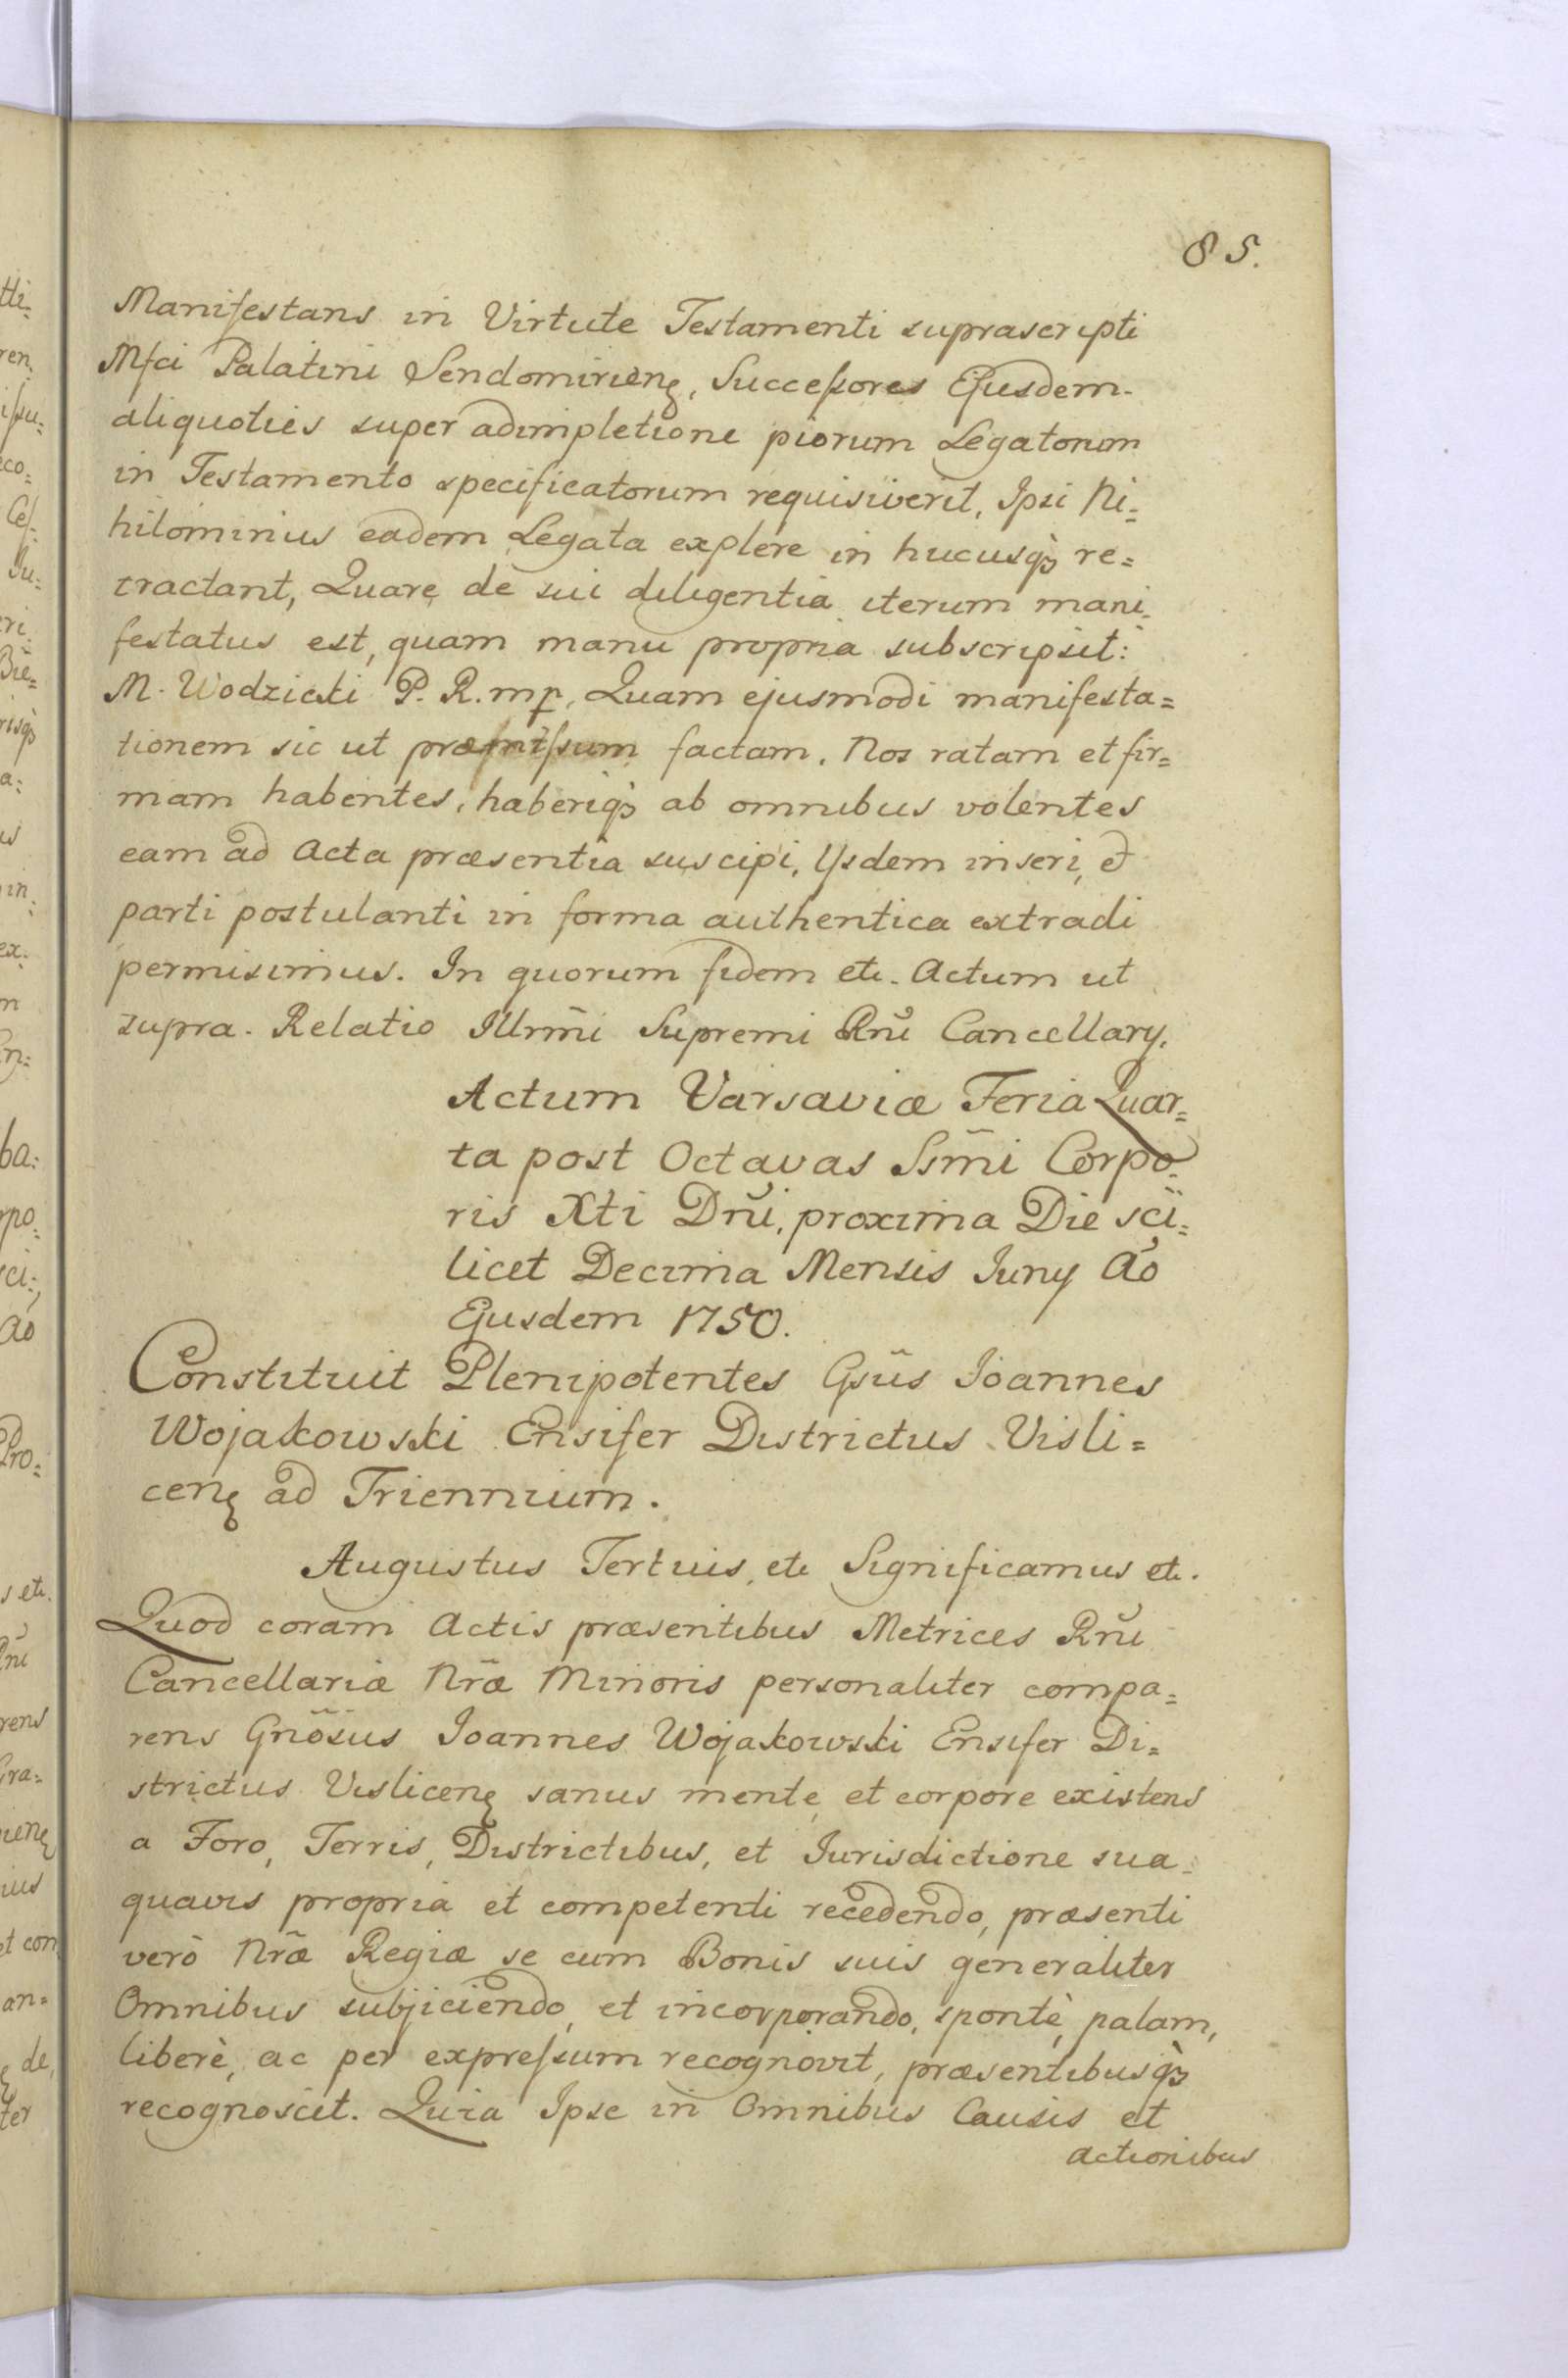 85.
Manifestans in Virtute Testamenti suprascripti
Mfci Palatini Sendomirieng, Succeſsores Ejusdem
aliquoties super adimpletione piorum Legatorum
in Testamento specificatorum requisiverit, Ipsi Ni=
hilominus eadem Legata explere in hucusq̀ʒ re=
tractant, Quare de sui diligentia iterum mani=
festatus est, quam manu propria subscripsit:
M. Wodzicki P. R. mp, Quam ejusmodi manifesta=
tionem sic ut præmiſsum factam, Nos ratam et fir=
mam habentes, haberiq̀ʒ ab omnibus volentes
eam ad Acta præsentia suscipi, Ijsdem inseri, et
parti postulanti in forma authentica extradi
permisimus. In quorum fidem etc. Actum ut
supra. Relatio Illrm̃i Supremi Rñi Cancellary.
Actum Varsaviæ Feria Quar=
ta post Octavas Ssm̃i Corpo=
ris Xti Dñi, proxima Die sci=
licet Decima Mensis Juny Ao
Ejusdem 1750.
Constituit Plenipotentes Gsũs Joannes
Wojakowski Ensifer Districtus Visli=
ceng ad Triennium.
Augustus Tertius, etc Significamus etc.
Quod coram Actis præsentibus Metrices Rñi
Cancellariæ Nrãe Minoris personaliter compa=
rens Gnõsus Joannes Wojakowski Ensifer Di=
strictus Visliceng sanus mente, et corpore existens
a Foro, Terris, Districtibus, et Jurisdictione sua
quavis propria et competenti recedendo, præsenti
verò Nrãe Regiæ se cum Bonis suis generaliter
Omnibus subjiciendo, et incorporando, spontè, palam,
liberè, ac per expreſsum recognovit, præsentibusq̀ʒ
recognoscit. Quia Ipse in Omnibus Causis et
actionibus